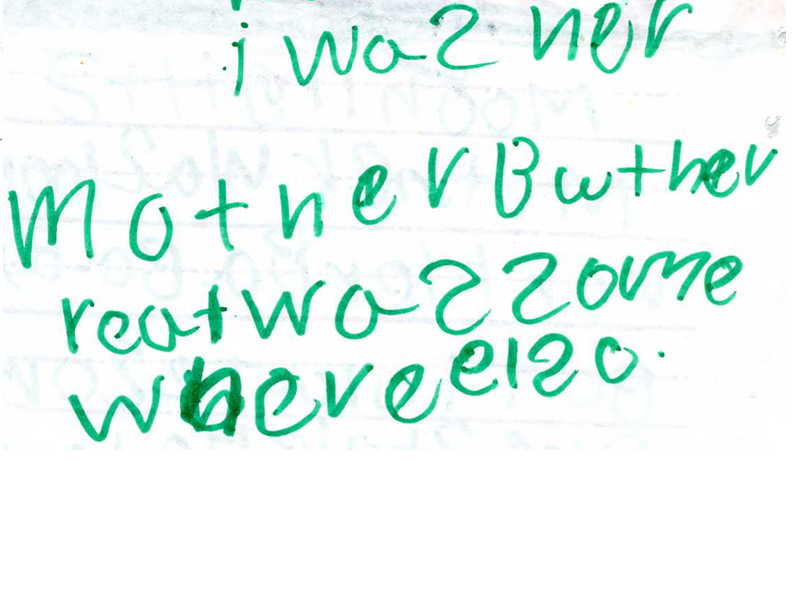 i was her
Mother But her
reat was some
where elso.